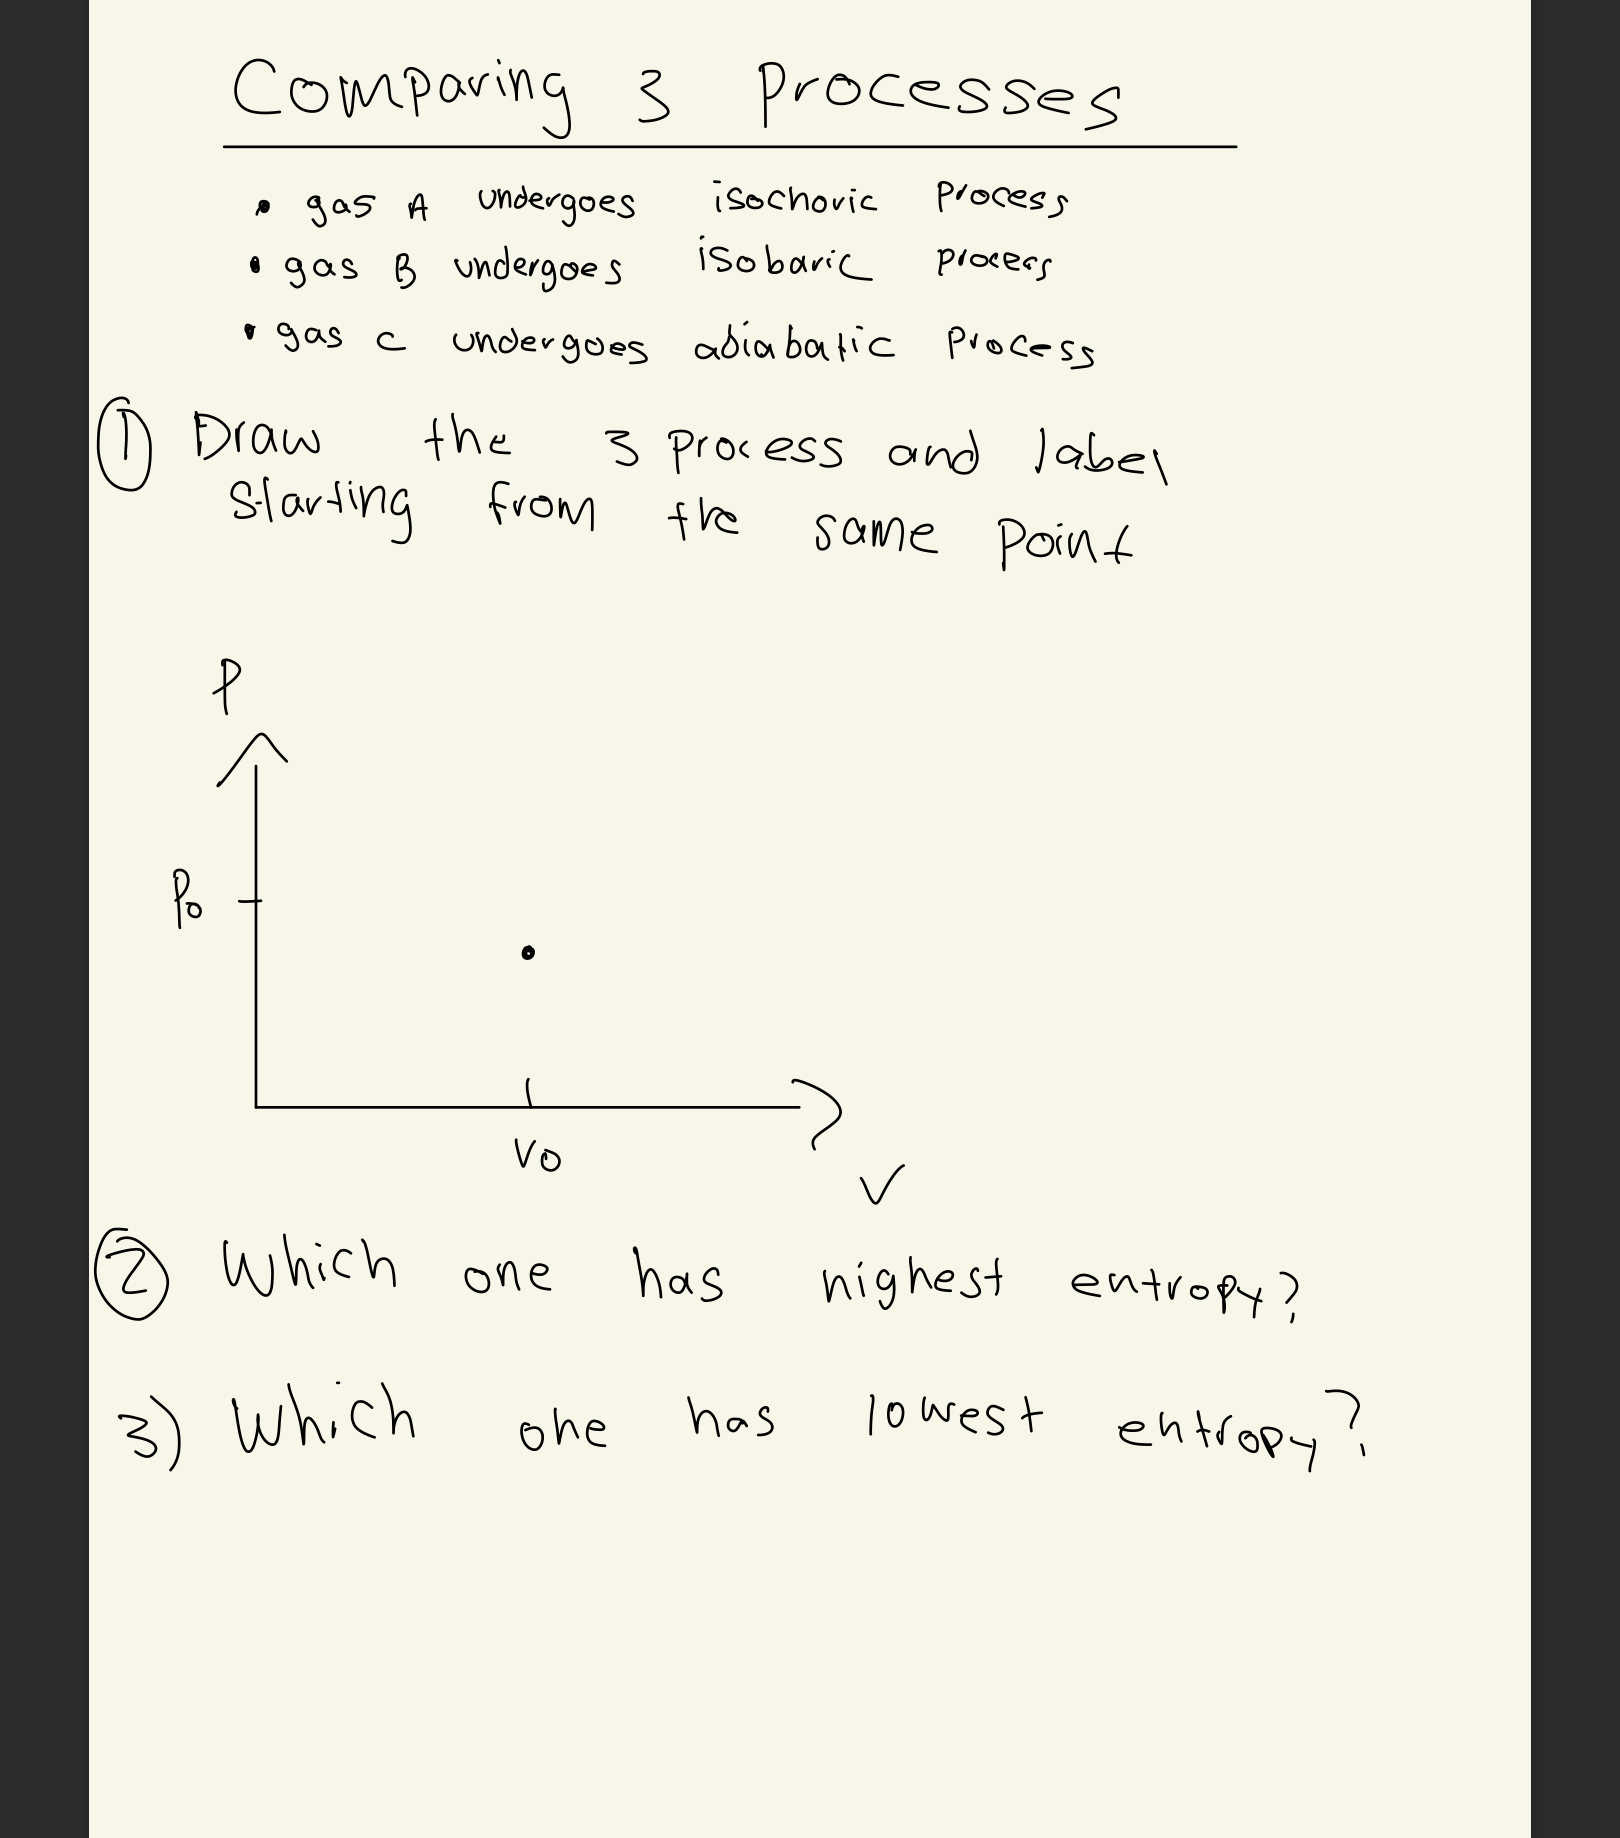 Comparing 3 Processes
• gas A undergoes isochoric process
• gas B undergoes isobaric process
• gas C undergoes adiabatic process
① Draw the 3 process and label
starting from the same point
P
Po
Vo
V
② Which one has highest entropy?
3) Which one has lowest entropy?